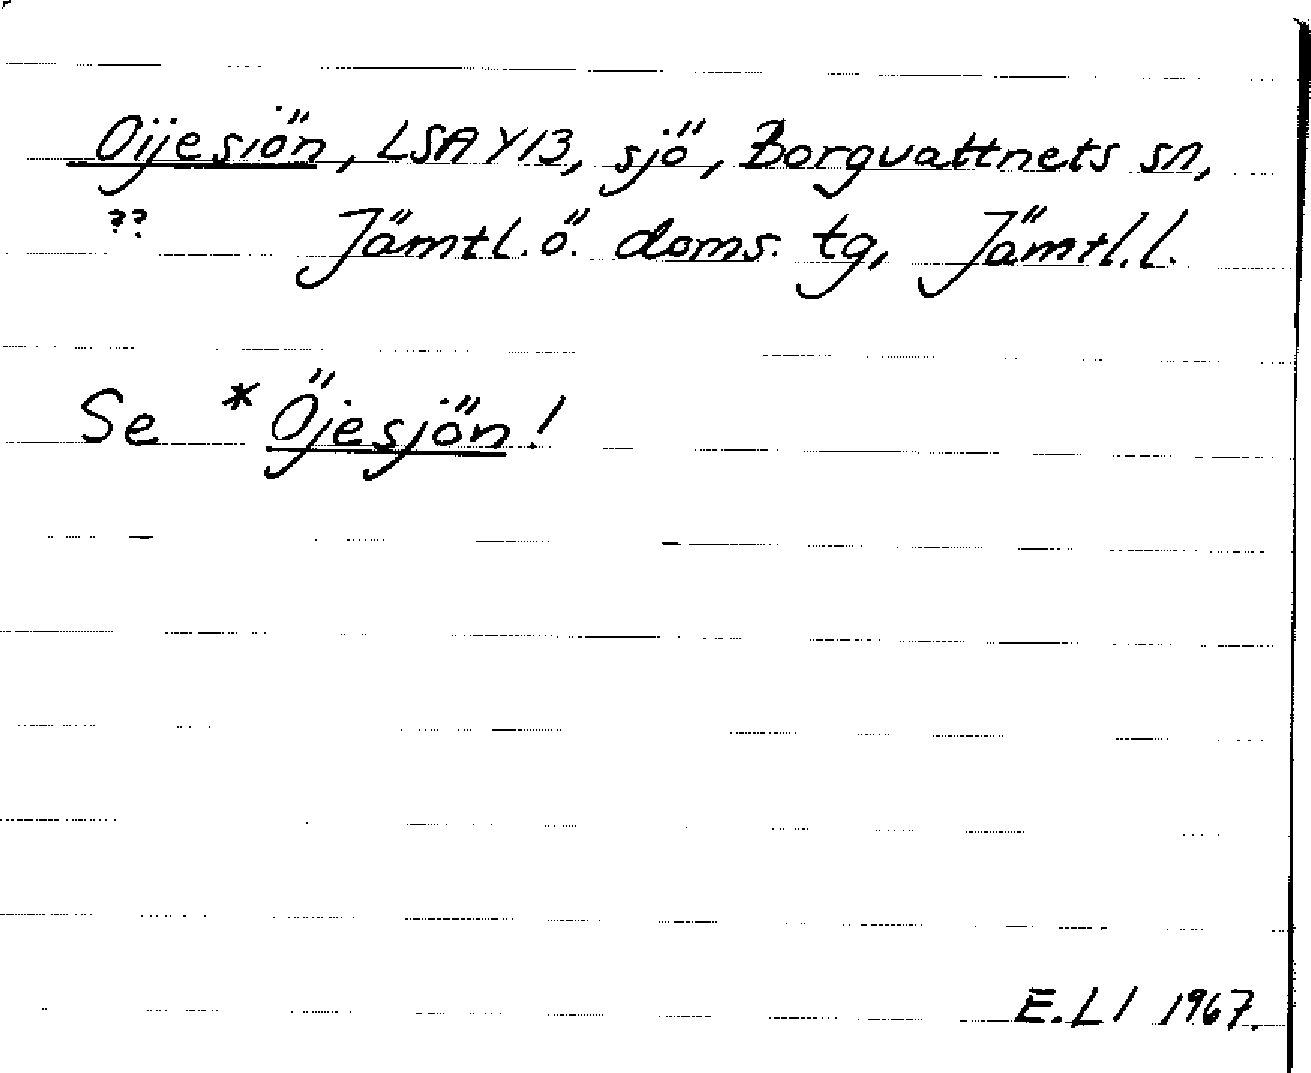 Oijesiön, LSA Y13, sjö, Borgvattnets sn,
?? Jämtl. ö. doms. tg, Jämtl. l.
Se *Öjesjön!
E. L 1967.